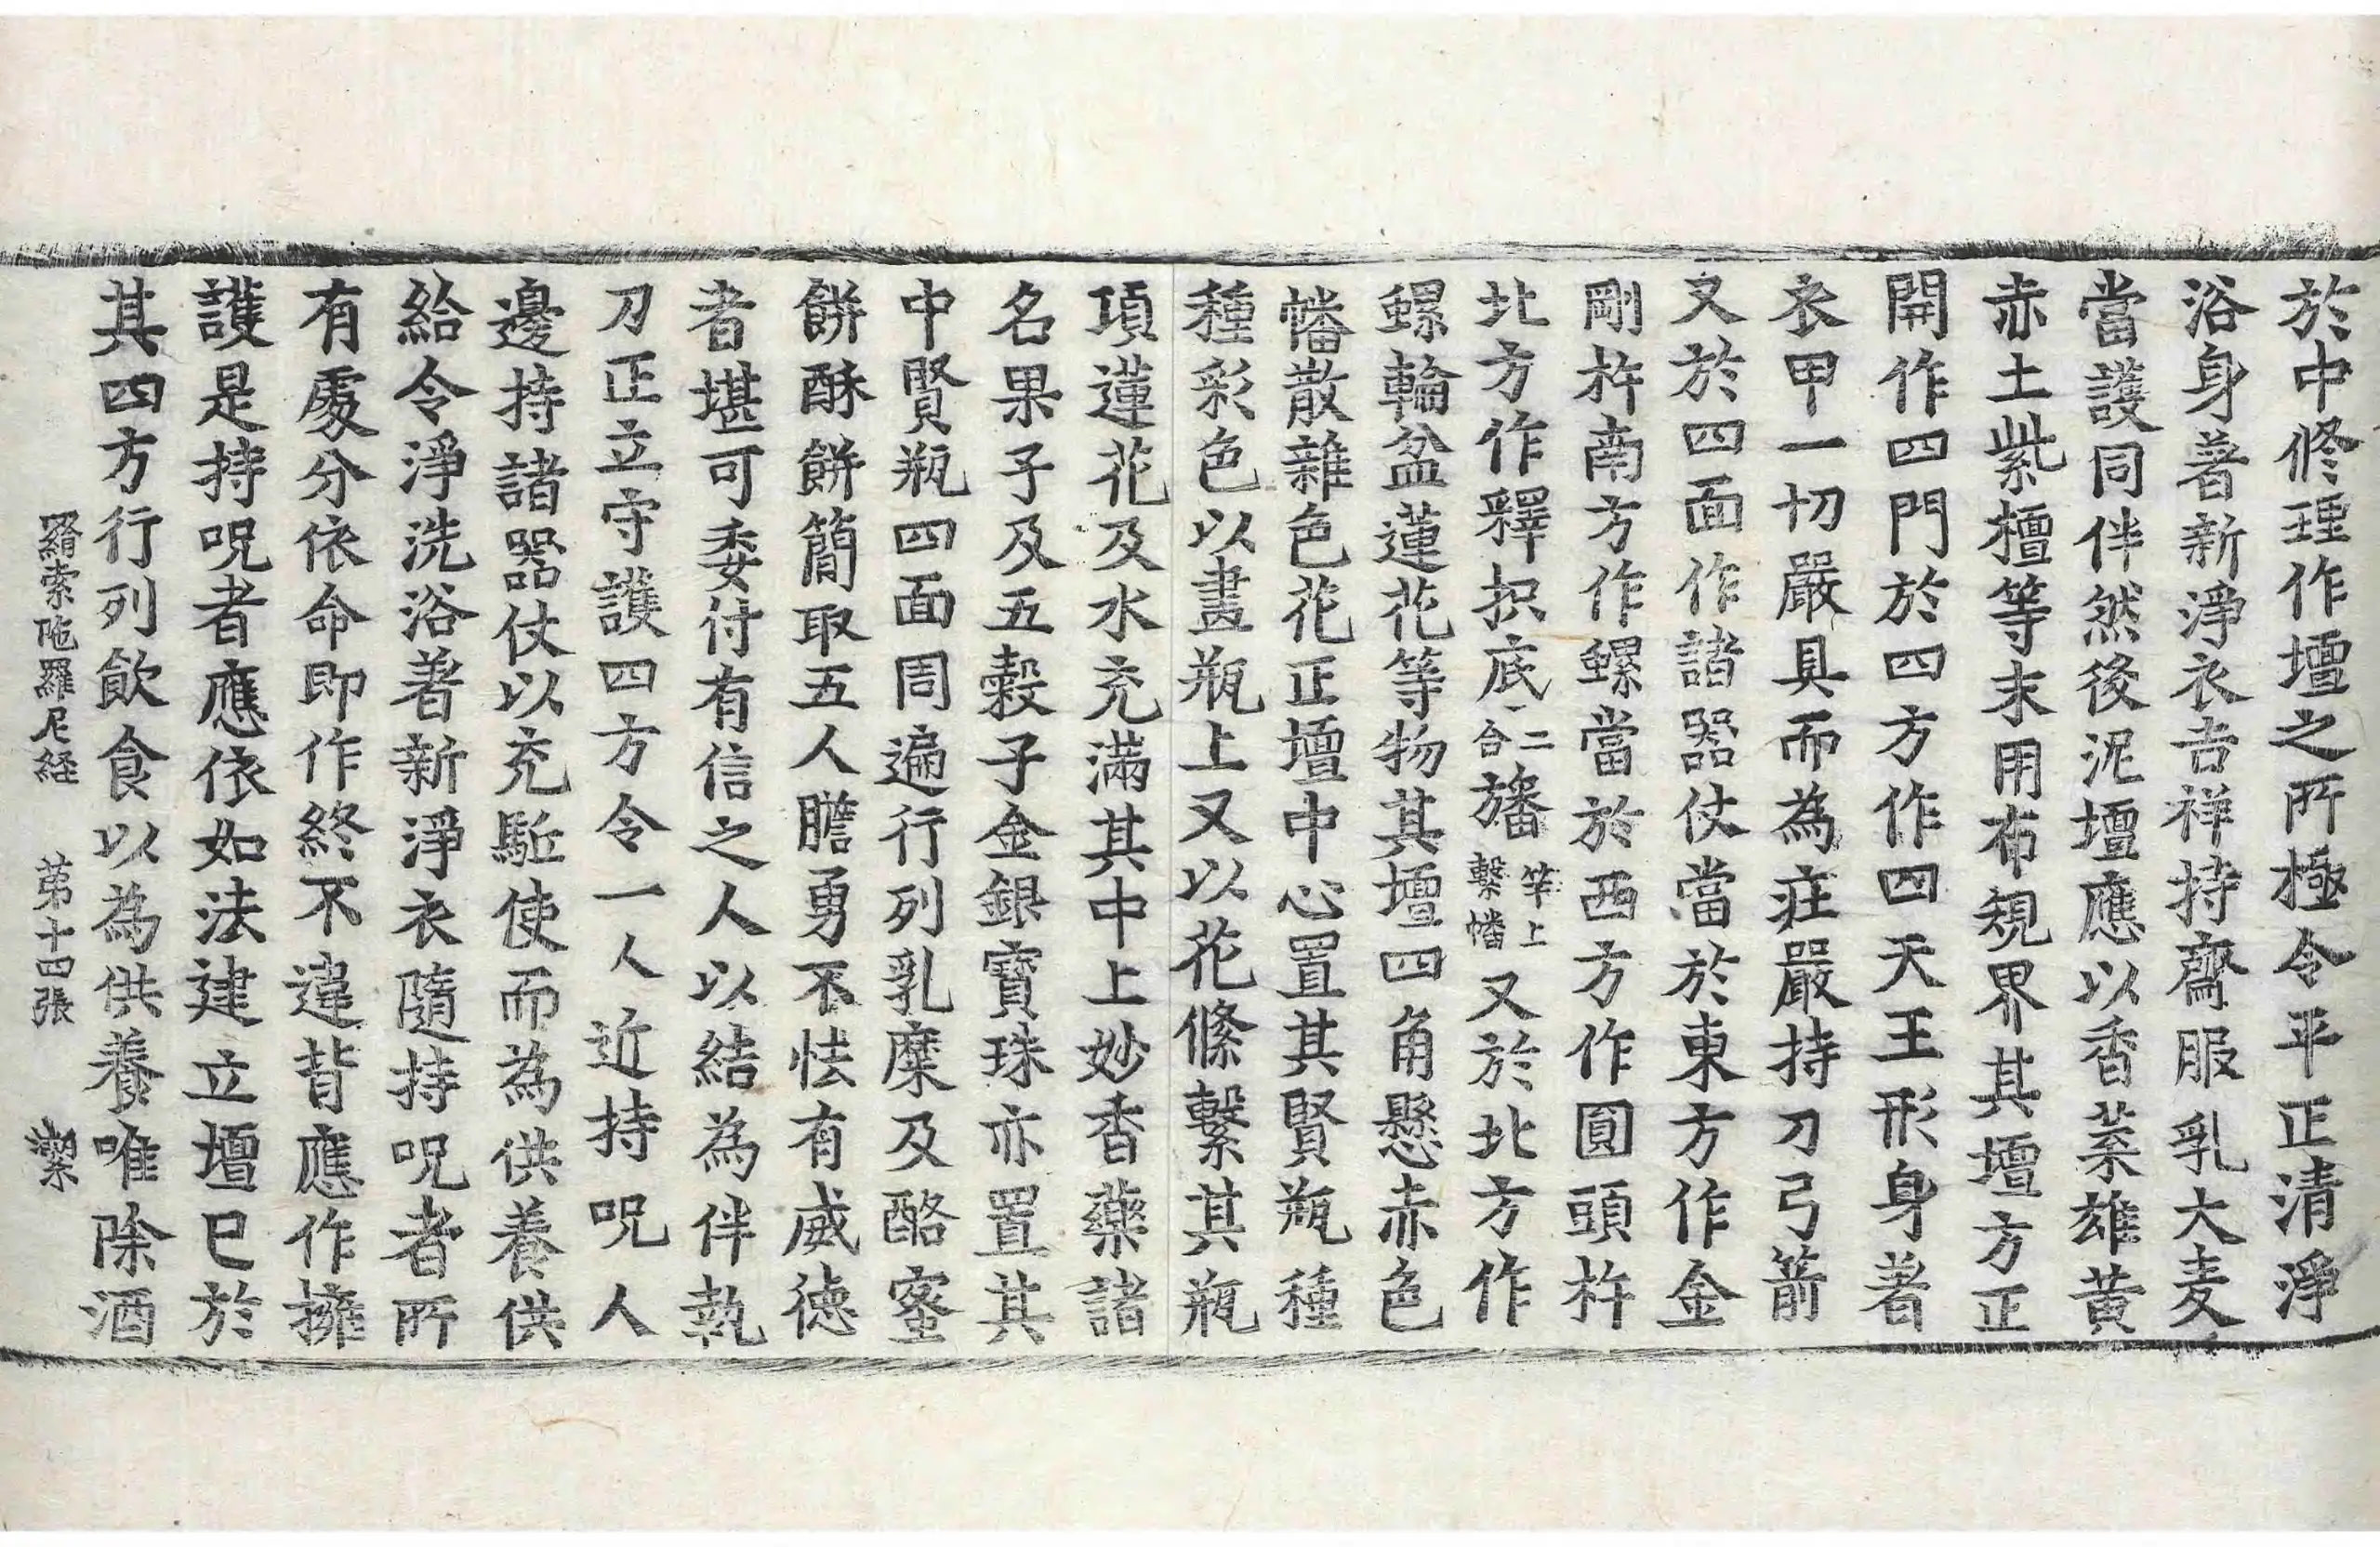 於中修理作壇之所極令平正清淨
浴身著新淨衣吉祥持齋服乳大麦
當護同伴然後泥壇應以香菜雄黃
赤土紫檀等末用布規界其壇方正
開作四門於四方作四天王形身著
衣甲一切嚴具而為庄嚴持刀弓箭
又於四面作諸器仗當於東方作金
剛杵南方作螺當於西方作圓頭杵
北方作釋抧底二合旛竿上繫幡又於北方作
螺輪盆蓮花等物其壇四角懸赤色
幡散雜色花正壇中心置其賢瓶種
種彩色以畫瓶上又以花絛繫其瓶
項蓮花及水充滿其中上妙香藥諸
名果子及五穀子金銀寶珠亦置其
中賢瓶四面周遍行列乳糜及酪蜜
餅酥餅簡取五人膽勇不怯有威德
者堪可委付有信之人以結為伴執
刀正立守護四方令一人近持呪人
邊持諸器仗以充駈使而為供養供
給令淨洗浴著新淨衣隨持呪者所
有處分依命即作終不違背應作擁
護是持呪者應依如法建立壇已於
其四方行列飲食以為供養唯除酒
羂索陁羅尼経 苐十四張 潔